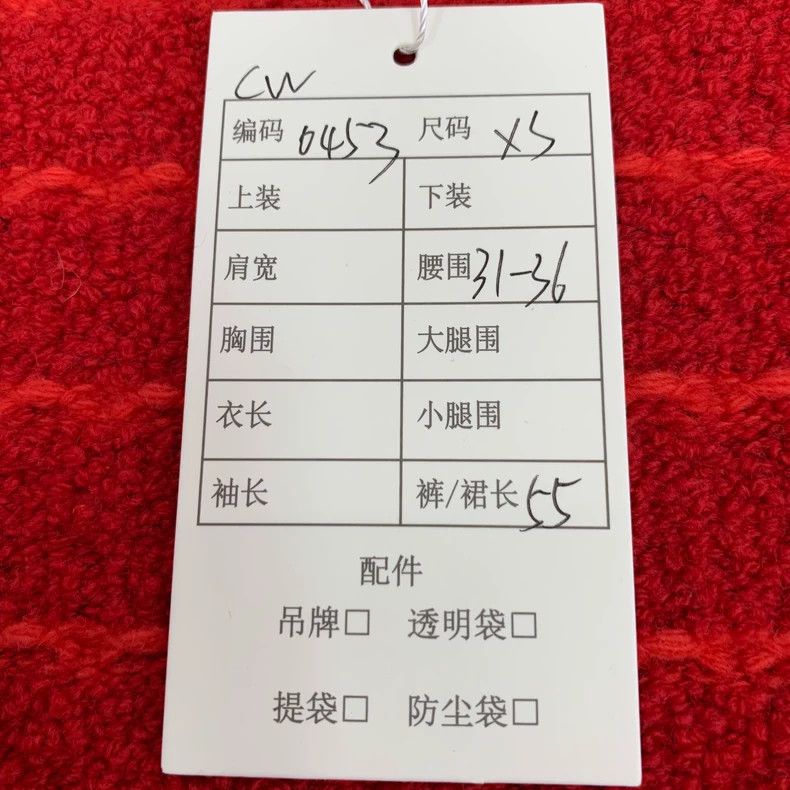 CW
编码 0453 尺码 XS
上装 下装
肩宽 腰围 31-36
胸围 大腿围
衣长 小腿围
袖长 裤/裙长 55
配件
吊牌□ 透明袋□
提袋□ 防尘袋□